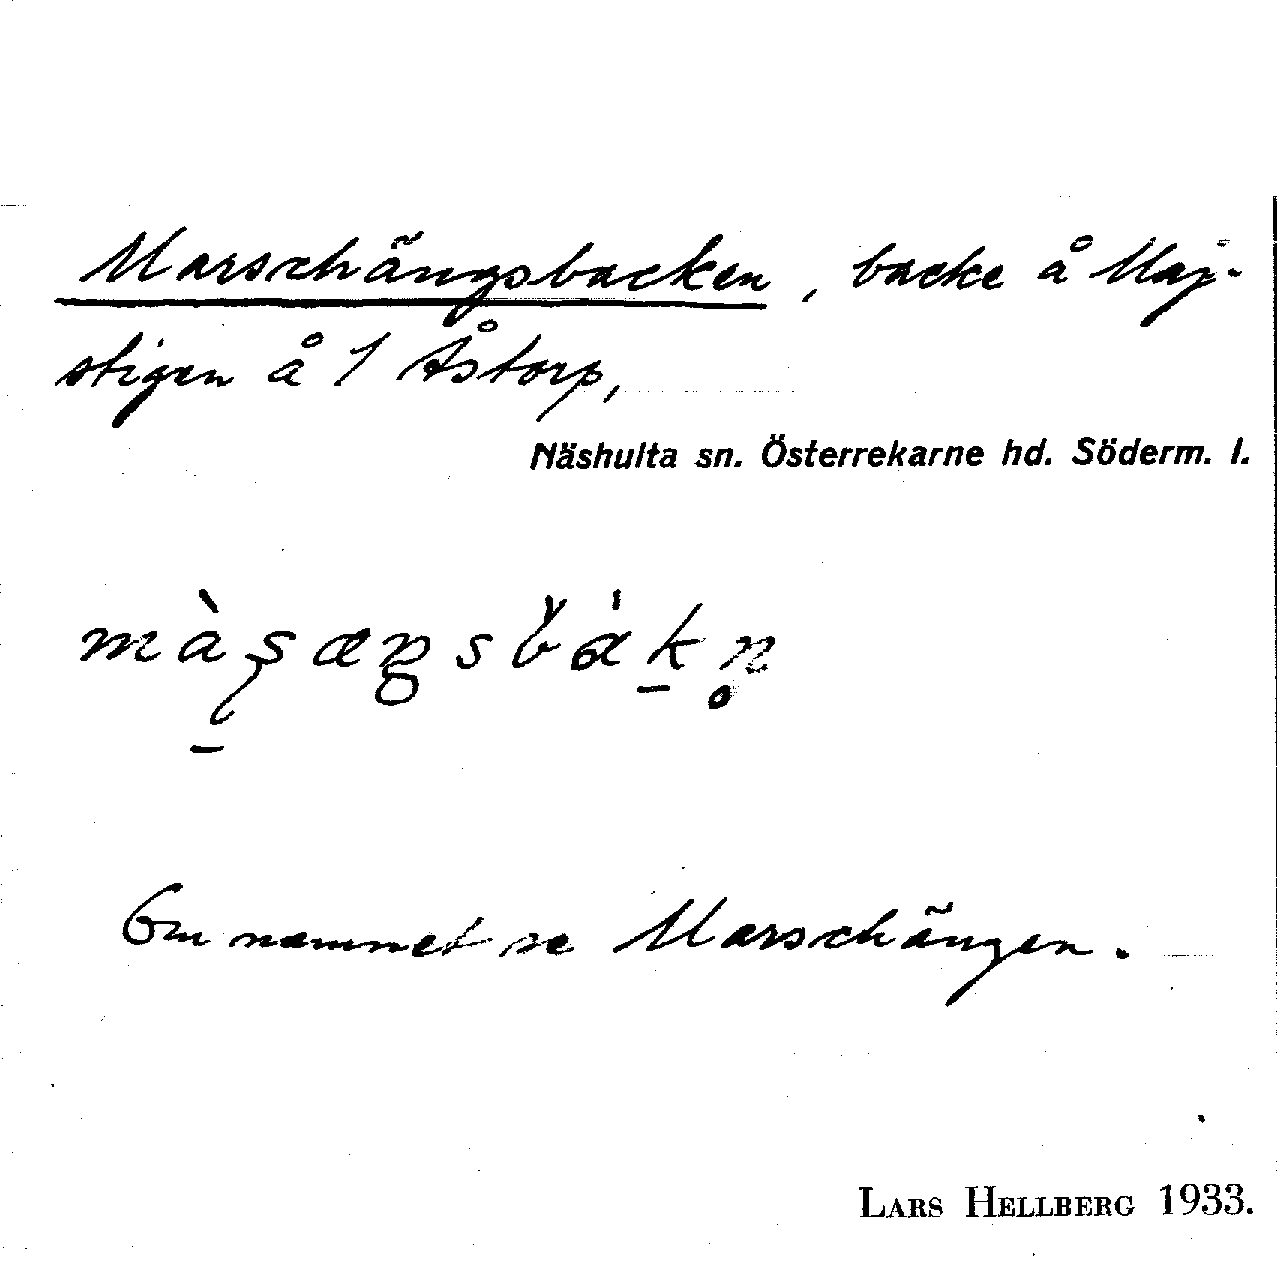 Marschängsbacken, backe å Maj-
stigen å 1 Åstorp,
Näshulta sn. Österrekarne hd. Söderm. l.
Om namnet se Marschängen.
LARS HELLBERG 1933.